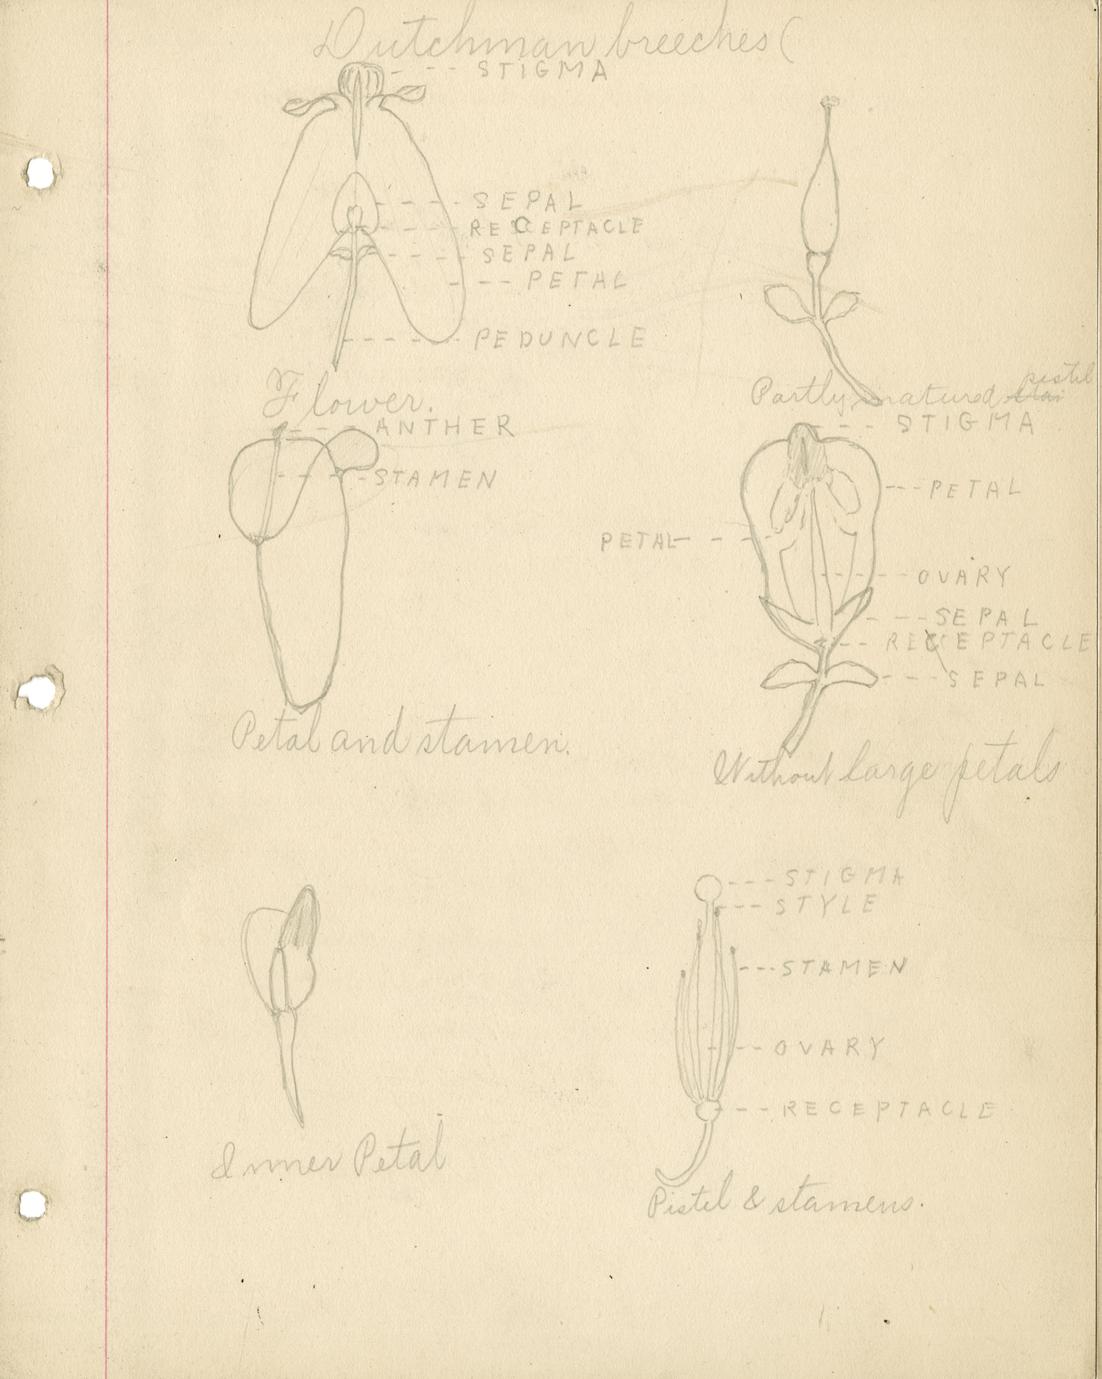 Dutchman breeches (
STIGMA
SEPAL
RECEPTACLE
SEPAL
PETAL
PEDUNCLE
Flower.
pistil
Partly matured
ANTHER
STAMEN
Petal and stamen.
STIGMA
PETAL
PETAL
OVARY
SEPAL
RECEPTACLE
SEPAL
Without large petals
Inner Petal
STIGMA
STYLE
STAMEN
OVARY
RECEPTACLE
Pistil & stamens.